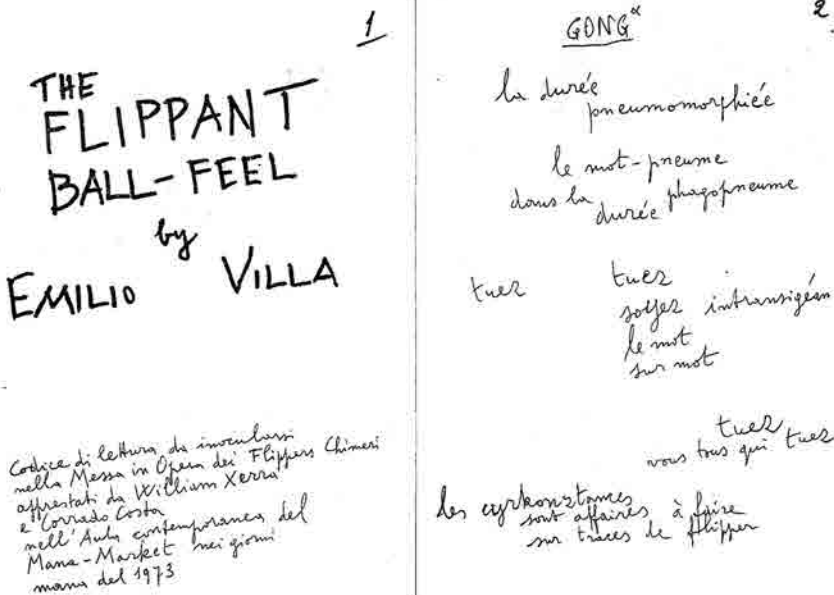 1
THE
FLIPPANT
BALL-FEEL
by
EMILIO VILLA
Codice di lettura da inocularsi
nella Messa in Opera dei Flippers Chimeri
apprestati da William Xerra
e Corrado Costa
nell'Aula contemporanea del
Mana-Market nei giorni
mana del 1973
2
GONG α
la durée
pneumomorphiée
le mot-pneume
dans la durée phagopneume
tuez tuez
soyez intransigéan
le mot
sur mot
tuez
vous tous qui tuez
les cyrkonztances
sont affaires à faire
sur traces de flipper